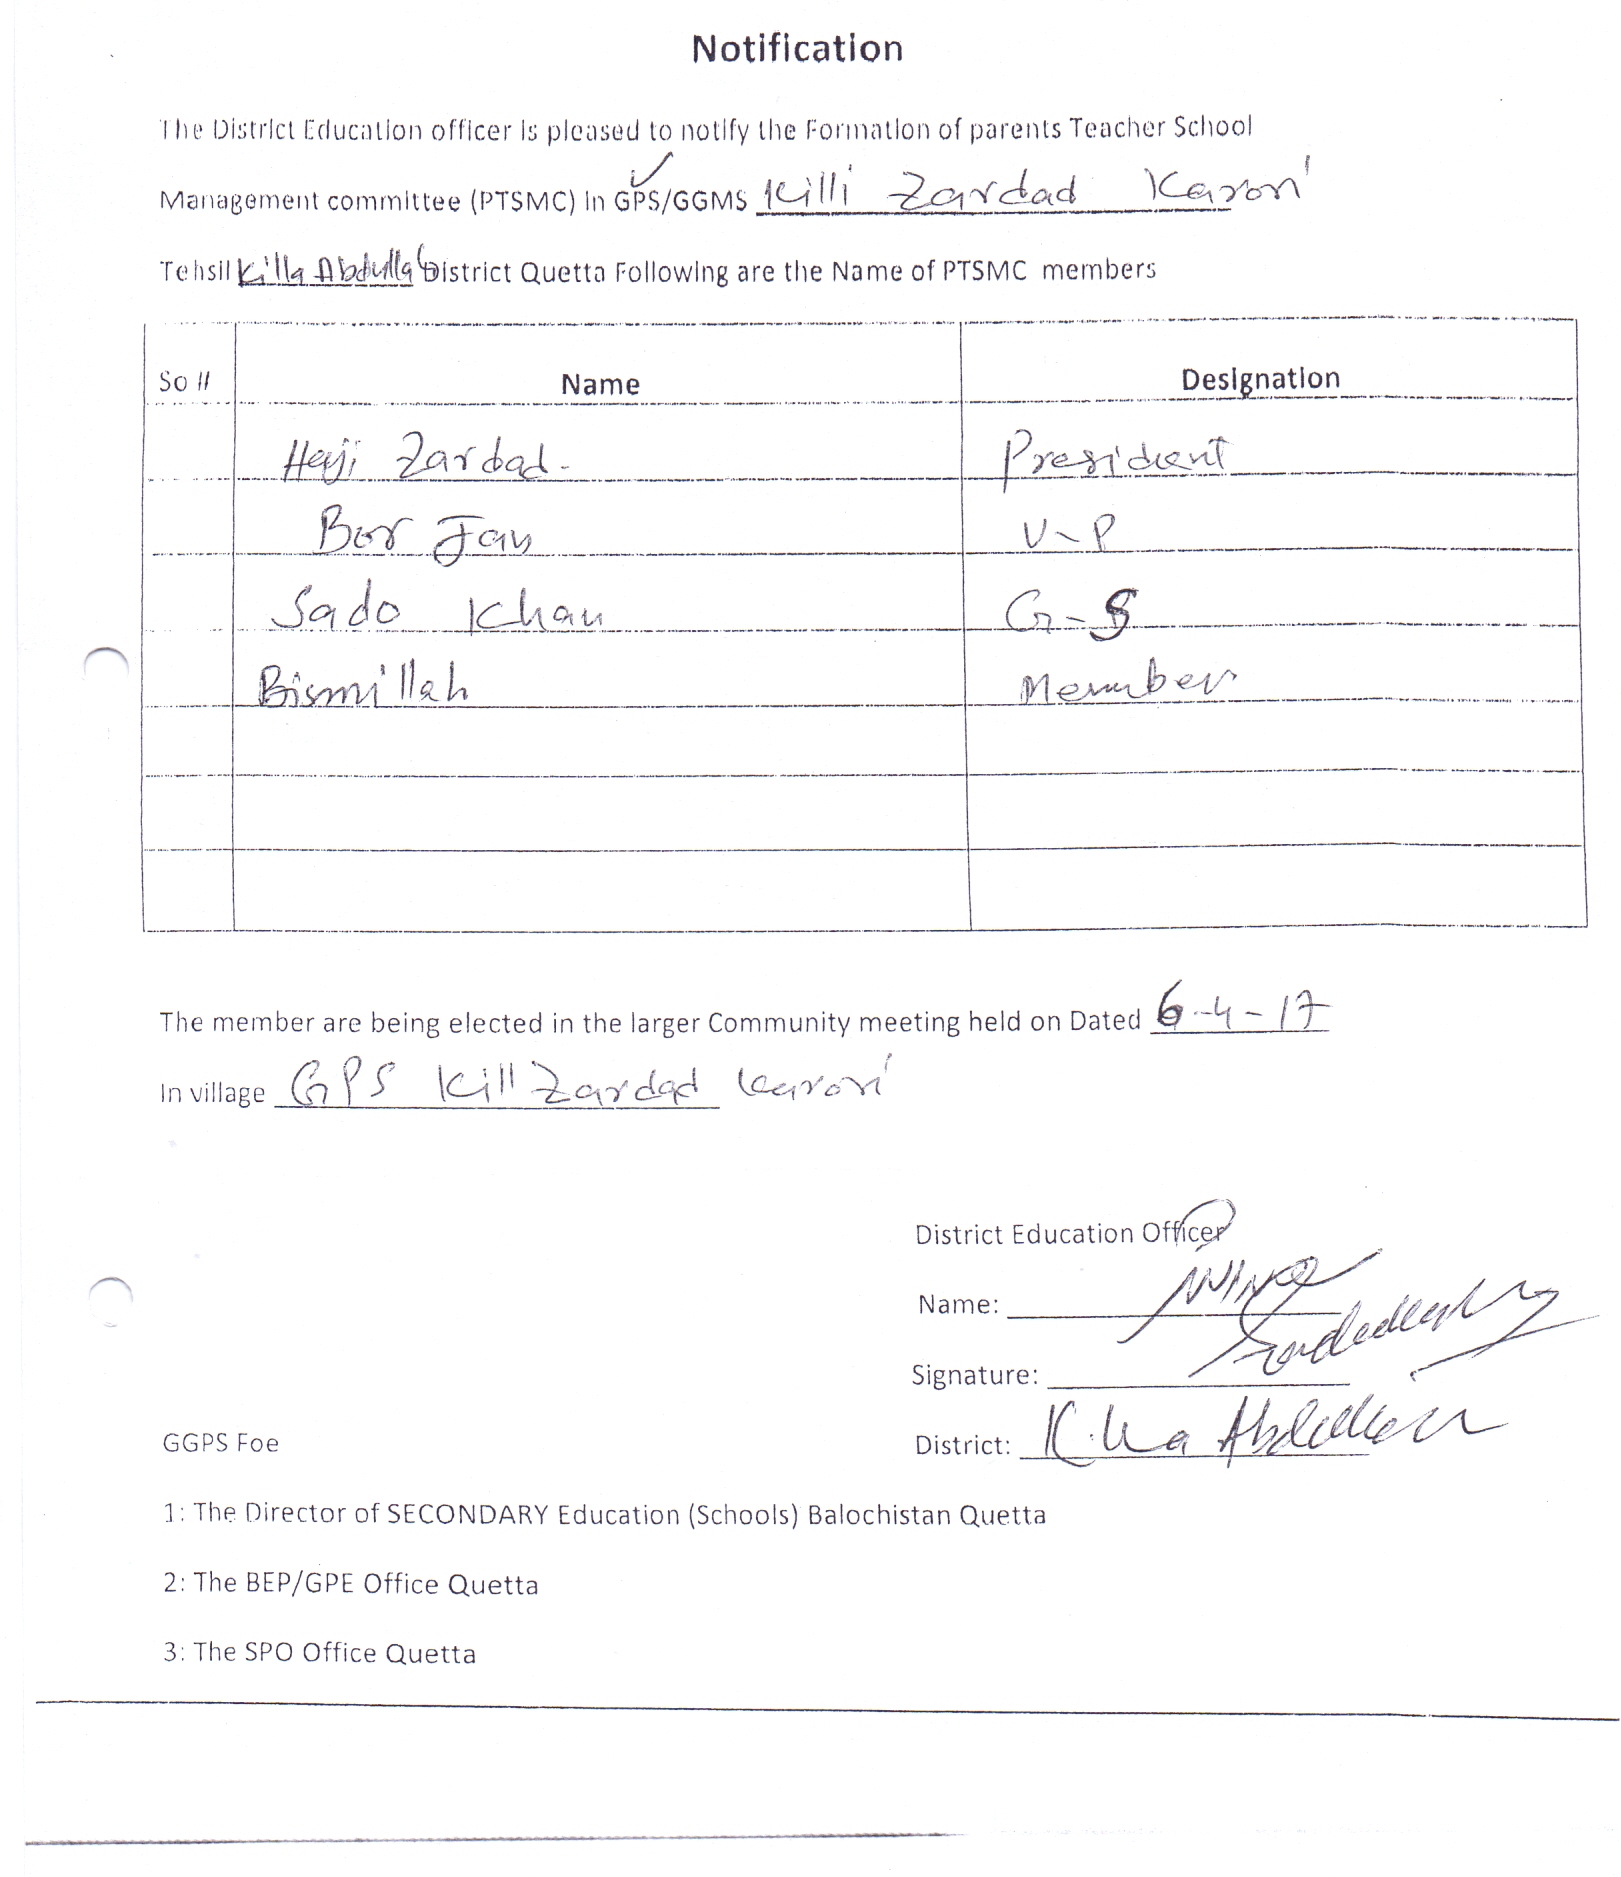 Notification
The District Education officer is pleased to notify the Formation of parents Teacher School
Management committee (PTSMC) In GPS/GGMS Killi Zardad Karori
Tehsil Killa Abdullah District Quetta Following are the Name of PTSMC members
So # Name Designation
Haji Zardad. President
Bor Jan V-P
Sado Khan G-S
Bismillah Member
The member are being elected in the larger Community meeting held on Dated 6-4-17
In village GPS Kill Zardad karori
District Education Officer
Name:
Signature:
GGPS Foe District: Killa Abdullah
1: The Director of SECONDARY Education (Schools) Balochistan Quetta
2: The BEP/GPE Office Quetta
3: The SPO Office Quetta